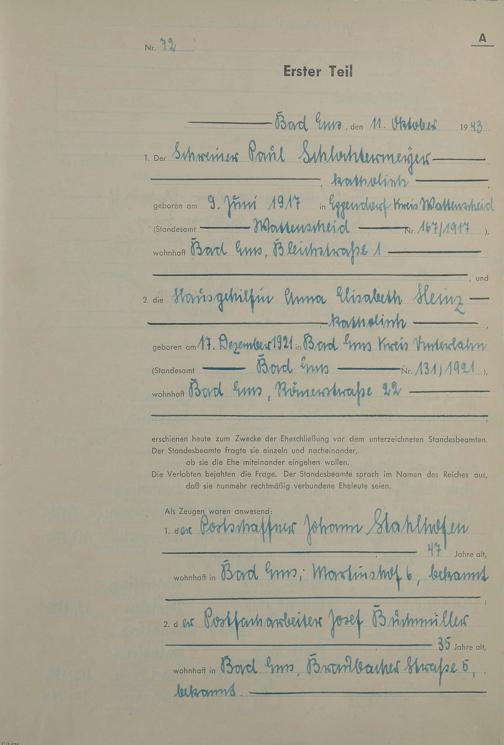 A
Nr. 72
Erster Teil
Bad Ems, den 11. Oktober 1943
1. Der Schreiner Paul Schlachtermeyer
, katholisch
geboren am 9. Juni 1917 in Eppendorf Kreis Wattenscheid
(Standesamt Wattenscheid Nr. 167/1917 ),
wohnhaft Bad Ems, Bleichstraße 1
, und
2. die Hausgehilfin Anna Elisabeth Heinz
katholisch ,
geboren am 17. Dezember 1921 in Bad Ems Kreis Unterlahn
(Standesamt Bad Ems Nr. 131/1921 ),
wohnhaft Bad Ems, Römerstraße 22
erschienen heute zum Zwecke der Eheschließung vor dem unterzeichneten Standesbeamten.
Der Standesbeamte fragte sie einzeln und nacheinander,
ob sie die Ehe miteinander eingehen wollen.
Die Verlobten bejahten die Frage. Der Standesbeamte sprach im Namen des Reiches aus,
daß sie nunmehr rechtmäßig verbundene Eheleute seien.
Als Zeugen waren anwesend:
1. der Postschaffner Johann Stahlhofen
47 Jahre alt,
wohnhaft in Bad Ems, Martinshof 6, bekannt
2. der Postfacharbeiter Josef Buchmüller
35 Jahre alt,
wohnhaft in Bad Ems, Braubacher Straße 5,
bekannt.